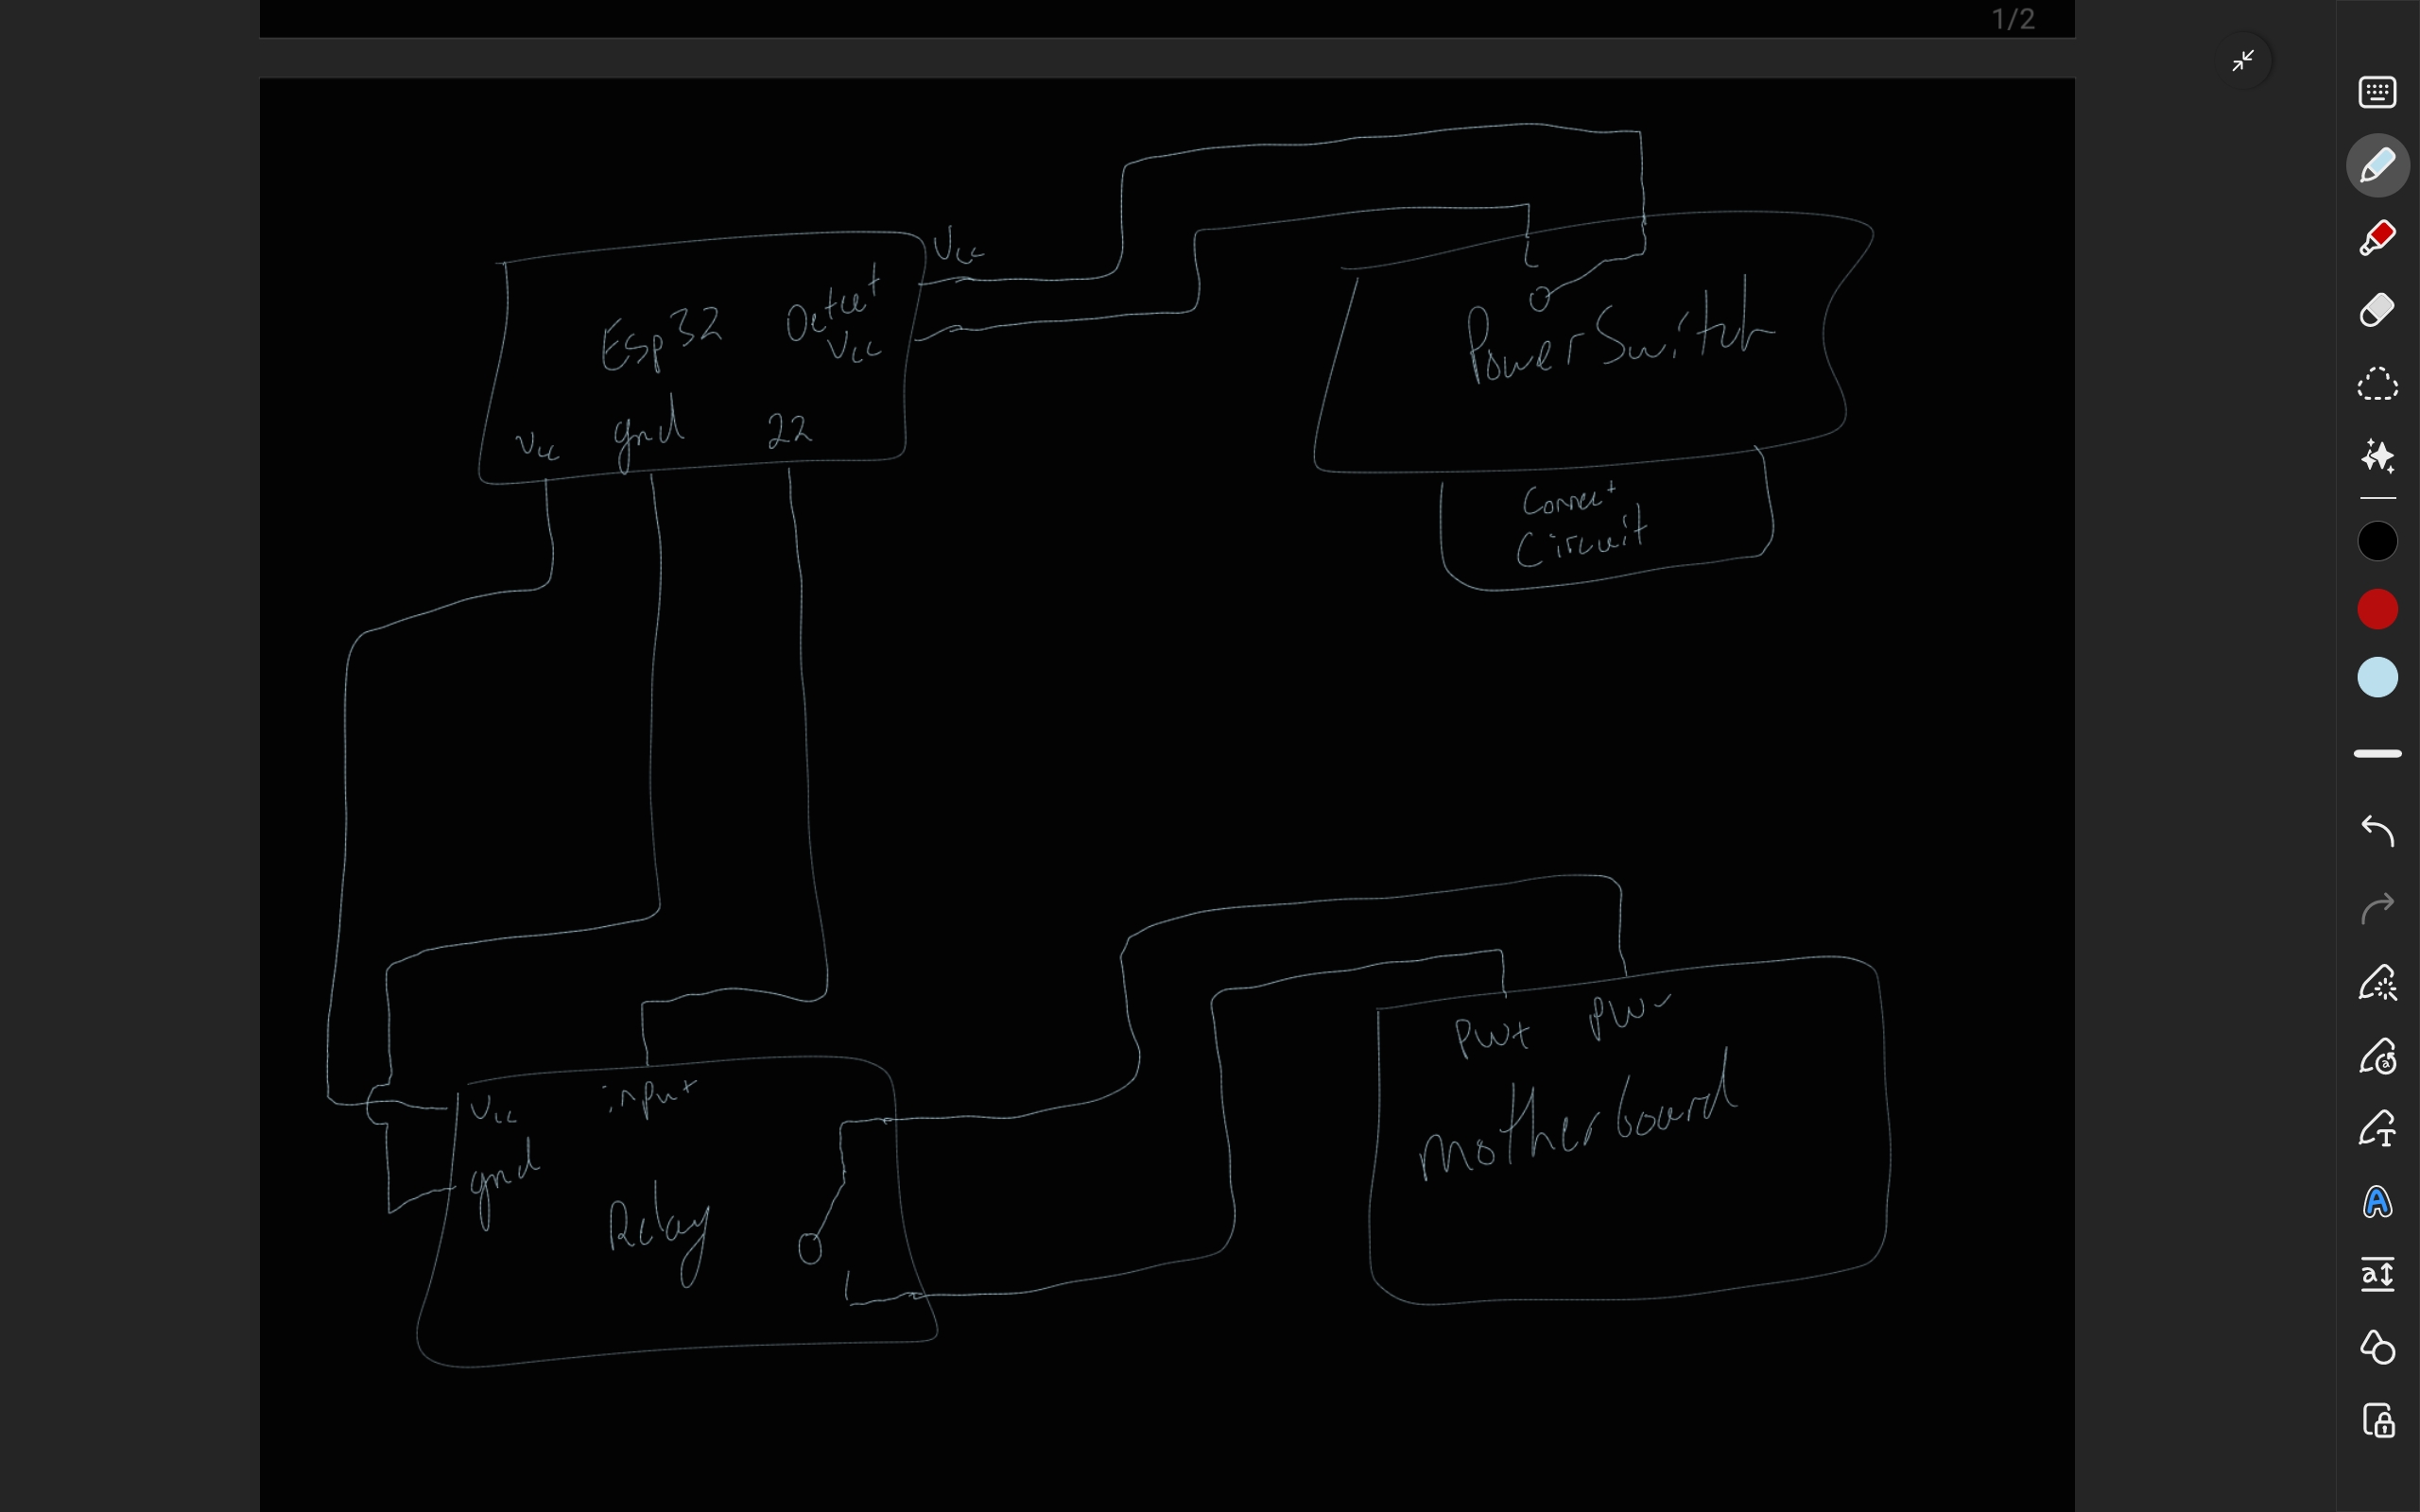 1/2
Vcc
Esp32
Detect
Vcc
Vcc gnd 22
Power Switch
Connect
Circuit
Vcc input
gnd
Relay
PW+ PW-
Motherboard